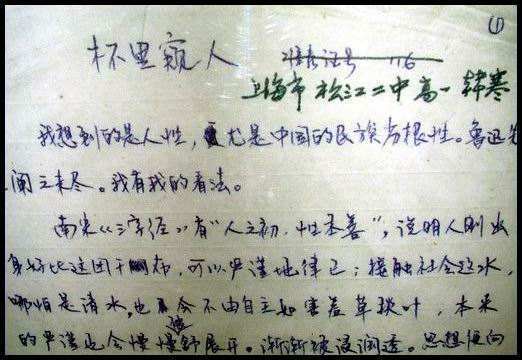 ①
杯里窥人 准考证号 116
上海市松江二中高一 韩寒
我想到的是人性，尤是中国的民族劣根性。鲁迅先
阐之未尽。我有我的看法。
南宋《三字经》有“人之初，性本善”，说明人刚出
身好比这团干布，可以严谨地律己；接触社会这水，
哪怕是清水，也会不由自主如害羞草叶，本来
的严谨也会慢慢被舒展开。渐渐被浸润透。思想便向